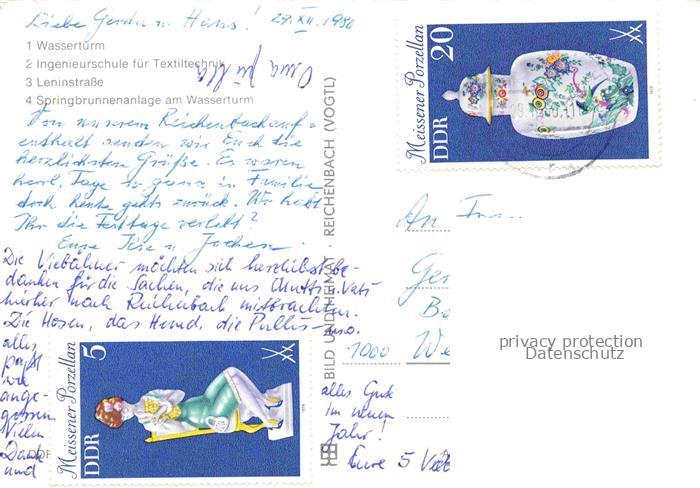 Liebe Gerda u. Hans! 29.XII.1980
1 Wasserturm
2 Ingenieurschule für Textiltechnik
3 Leninstraße
4 Springbrunnenanlage am Wasserturm
Oma
Von unserem Reichenbachauf=
enthalt senden wir Euch die
herzlichsten Grüße. Es waren
herrl. Tage so ganz in Familie
doch heute gehts zurück. Wo habt
Ihr die Festtage verlebt?
Eure u. Jochen
Die möchten sich herzlichst be-
danken für die Sachen, die uns Mutti u. Vati
hierher nach Reichenbach mitbrachten.
Die Hosen, das Hemd, die Pullis usw.
alles
paßt
wie
ange-
gossen
Vielen
Dank
und
alles Gute
im neuen
Jahr!
Eure 5
BILD UND HEIMAT · REICHENBACH (VOGTL)
Meissener Porzellan
DDR 20
Meissener Porzellan
DDR 5
DDR
An
1000
privacy protection
Datenschutz